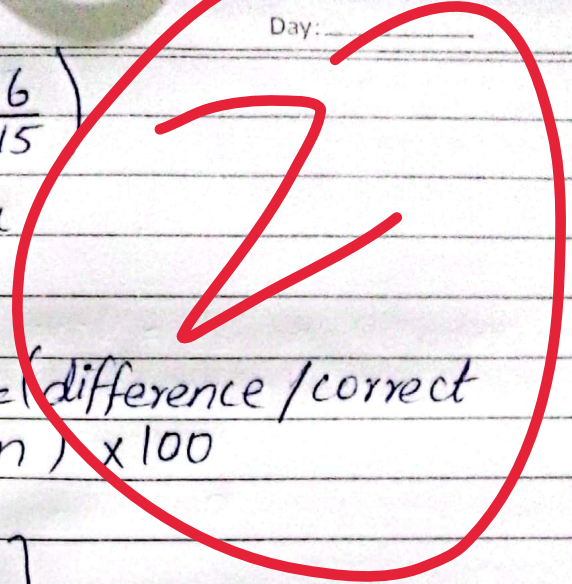 Day:
6
15
2
=(difference/correct
n) x100